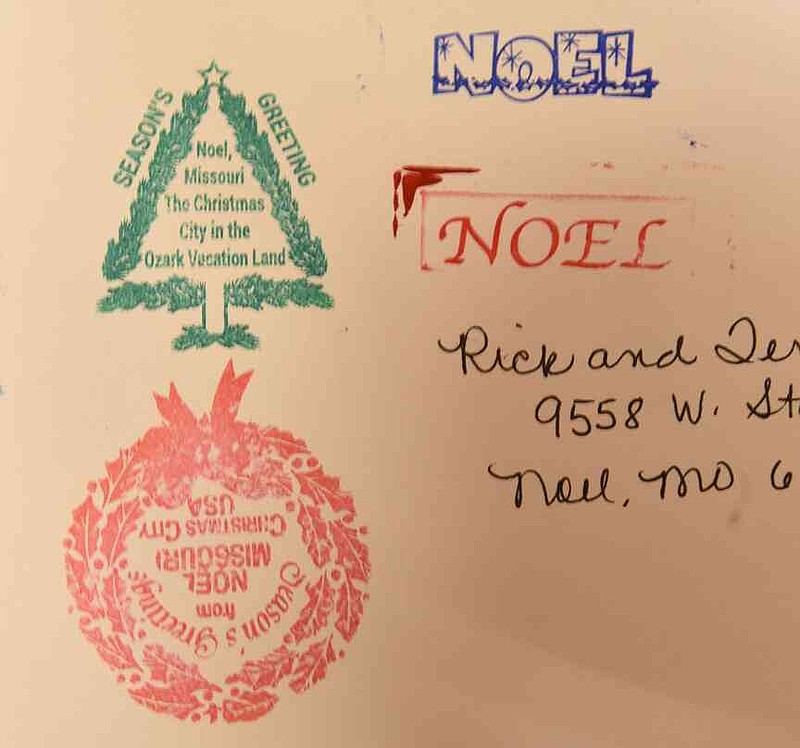 NOEL
SEASON'S GREETING
Noel,
Missouri
The Christmas
City in the
Ozark Vacation Land
NOEL
Rick and
9558 W.
Noel, MO 6
Season's Greetings
from
NOEL
MISSOURI
CHRISTMAS CITY
USA